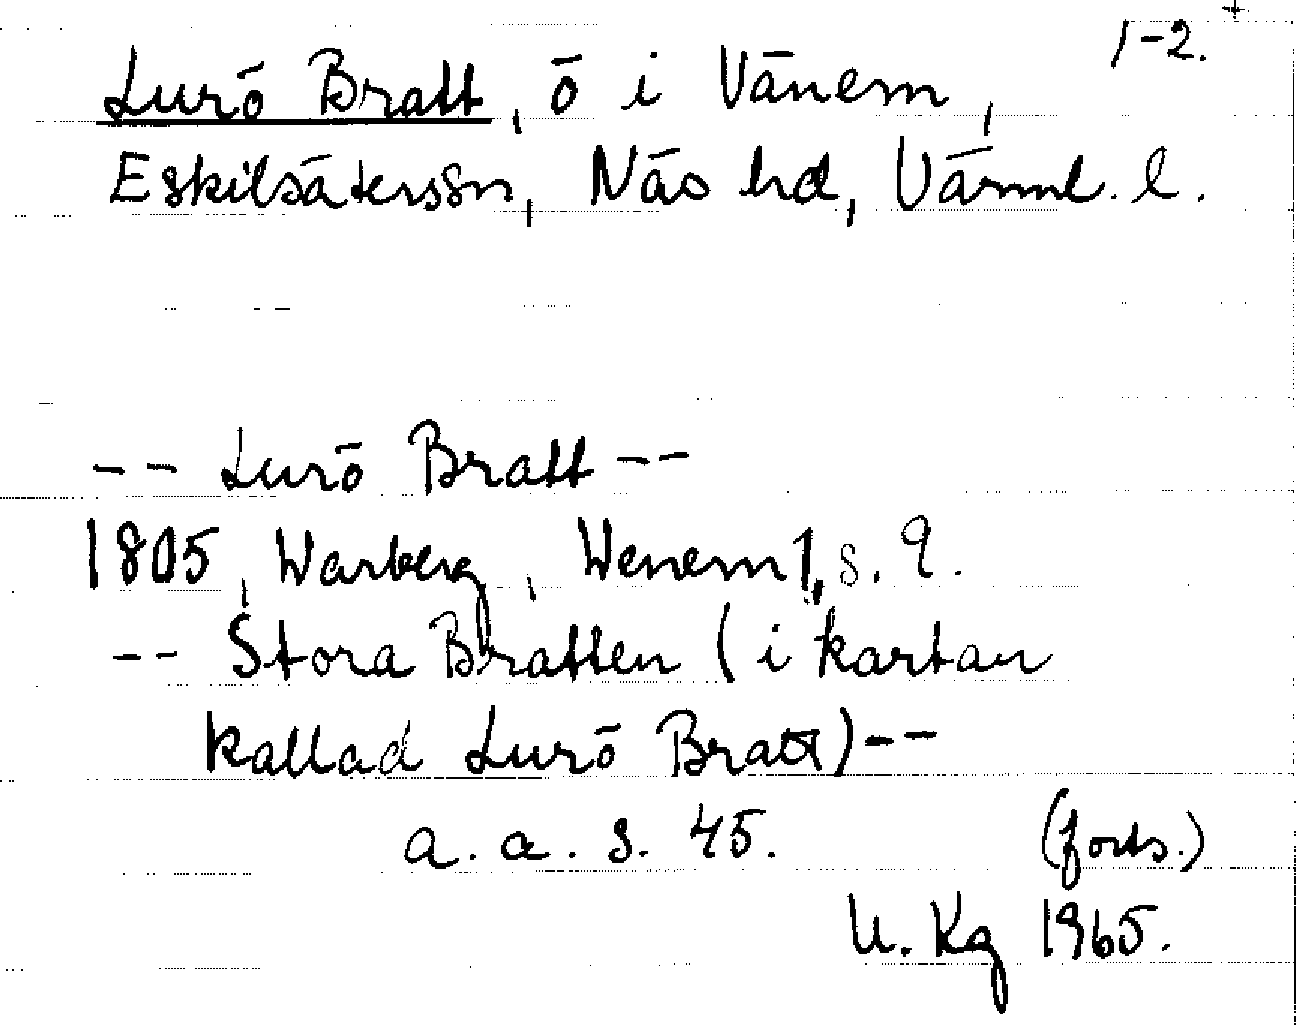 1-2. +
Lurö Bratt, ö i Vänern,
Eskilsäterssn, Näs hd, Värml. l.
-- Lurö Bratt --
1805, Warberg, Wenern 1, s. 9.
-- Stora Bratten (i kartan
kallad Lurö Bratt) --
a. a. s. 45. (forts.)
U. Kg 1965.